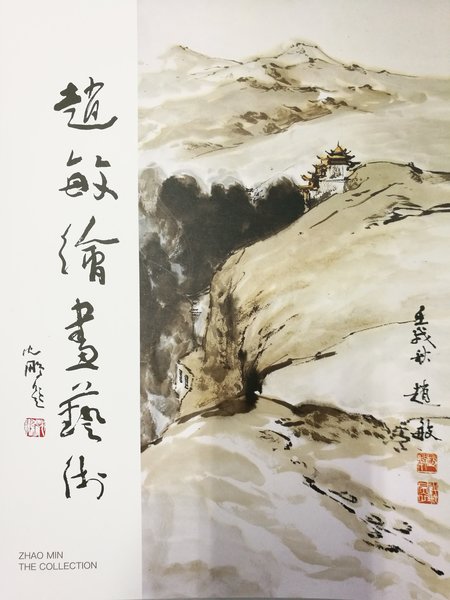 趙敏繪畫藝術
沈鵬題
壬戌秋趙敏
ZHAO MIN
THE COLLECTION